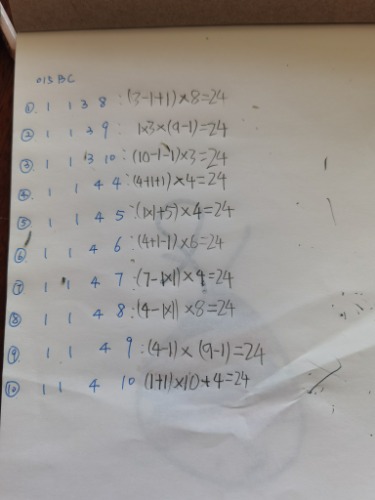 015BC
① 1 1 3 8 :(3-1+1)×8=24
② 1 1 3 9 1×3×(9-1)=24
③ 1 1 3 10 :(10-1-1)×3=24
④ 1 1 4 4 :(4+1+1)×4=24
⑤ 1 1 4 5 :(1×1+5)×4=24
⑥ 1 1 4 6 :(4+1-1)×6=24
⑦ 1 1 4 7 :(7-1×1)×4=24
⑧ 1 1 4 8 :(4-1×1)×8=24
⑨ 1 1 4 9 :(4-1)×(9-1)=24
⑩ 1 1 4 10 (1+1)×10+4=24